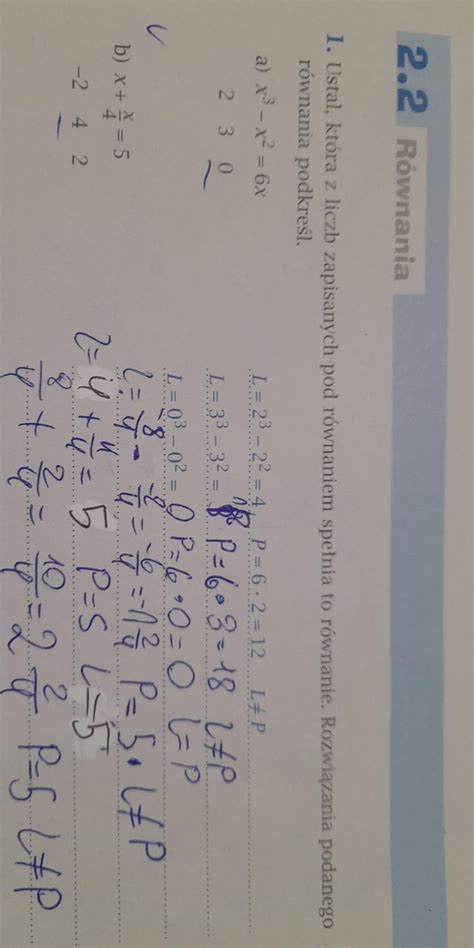 2.2 Równania
1. Ustal, która z liczb zapisanych pod równaniem spełnia to równanie. Rozwiązania podanego
równania podkreśl.
a) x³ − x² = 6x
2 3 0
L = 2³ − 2² = 4 P = 6 · 2 = 12 L ≠ P
L = 3³ − 3² = 18 P = 6 · 3 = 18 L ≠ P
L = 0³ − 0² = 0 P = 6 · 0 = 0 L = P
b) x + x/4 = 5
−2 4 2
L = -8/4 - 2/4 = -6/4 = -1 2/4 P = 5 · L ≠ P
L = 4 + 4/4 = 5 P = 5 L = 5
8/4 + 2/4 = 10/4 = 2 2/4 P = 5 L ≠ P